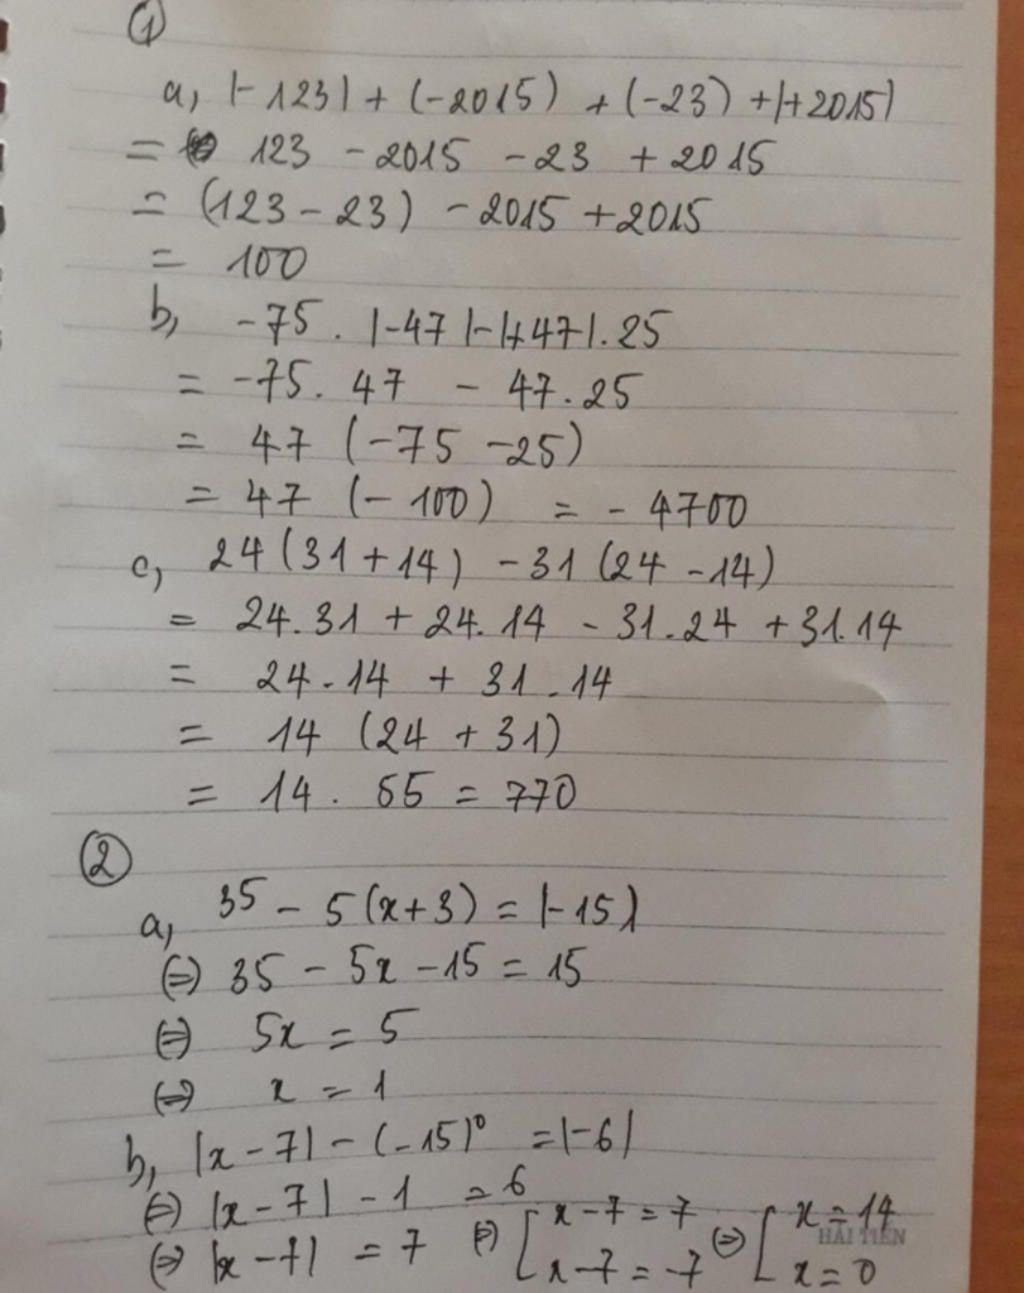 ①
a, |-123| + (-2015) + (-23) + |+2015|
= 123 - 2015 - 23 + 2015
= (123 - 23) - 2015 + 2015
= 100
b, -75 . |-47| - |+47| . 25
= -75 . 47 - 47 . 25
= 47 (-75 - 25)
= 47 (-100) = - 4700
c, 24 (31 + 14) - 31 (24 - 14)
= 24.31 + 24.14 - 31.24 + 31.14
= 24.14 + 31.14
= 14 (24 + 31)
= 14 . 55 = 770
②
a, 35 - 5(x+3) = |-15|
(=) 35 - 5x - 15 = 15
(=) 5x = 5
(=) x = 1
b, |x - 7| - (-15)⁰ = |-6|
(=) |x - 7| - 1 = 6
(=) |x - 7| = 7 (=) [ x - 7 = 7 (=) [ x = 14
x - 7 = -7 x = 0
HẢI TIẾN